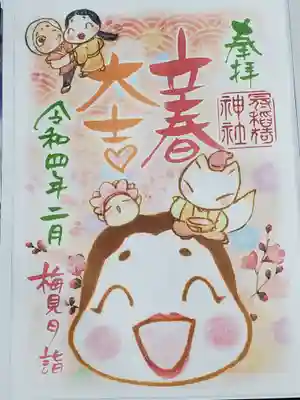 奉拝
冠稲荷
神社
立春
大吉
令和四年二月
梅見月詣